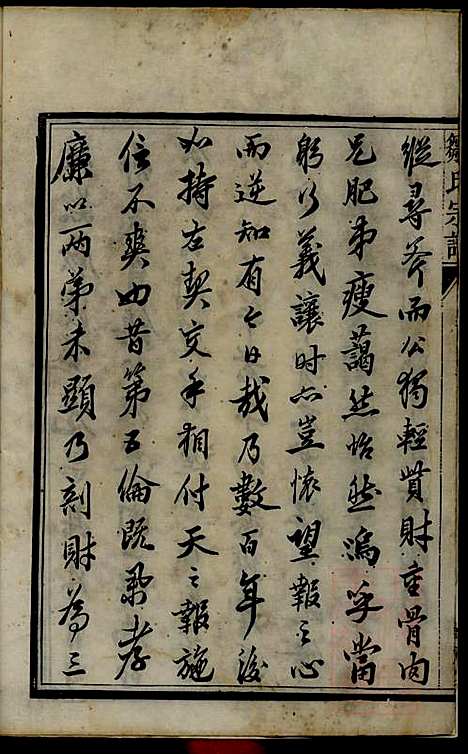 縱尋斧而公獨輕貲財重骨肉
兄肥弟瘦藹然怡然嗚乎當
躬行義讓時亦豈懷望報之心
而逆知有今日哉乃數百年後
如持左契交手相付天之報施
信不爽也昔第五倫既舉孝
廉以兩弟未顯乃割財為三
氏宗譜